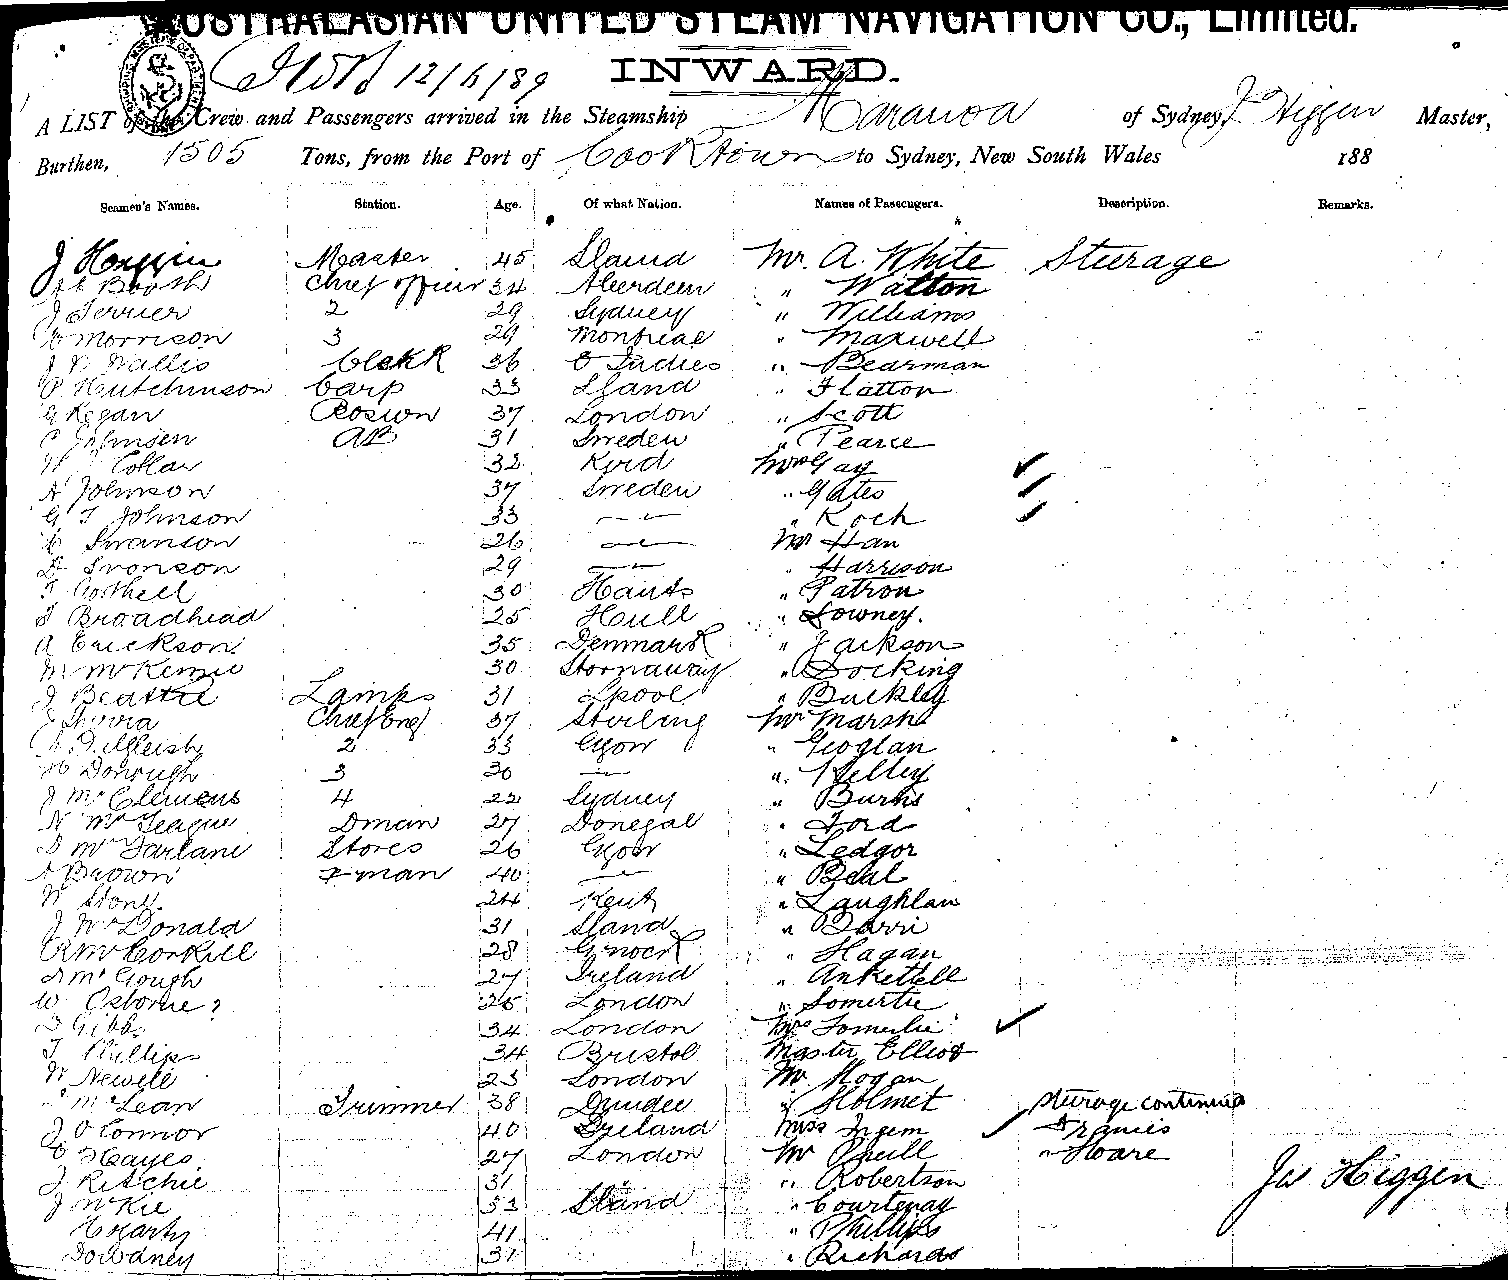 AUSTRALASIAN UNITED STEAM NAVIGATION CO., Limited.
12/6/89 INWARD.
A LIST of the Crew and Passengers arrived in the Steamship Maranoa of Sydney, J Higgen Master,
Burthen, 1505 Tons, from the Port of Cooktown to Sydney, New South Wales 188
Seamen's Names. Station. Age. Of what Nation. Names of Passengers. Description. Remarks.
J Higgin Master 45 Sland Mr. A. White Steerage
Booth Chief officer 34 Aberdeen " Watson
J Ferrier 2 29 Sydney " Williams
Morrison 3 29 Montreal " Maxwell
J Wallis Clerk 36 E Indies " Bearman
P Hutchinson Carp 33 Sland " Flatton
G Kegan Bosun 37 London " Scott
C Johnsen AB 31 Sweden " Pearce
W Collar 32 Mrs Gay
A Johnson 37 Sweden " Gates
G F Johnson 33 " Koch
C Swanson 26 Mr Han
D Svonson 29 " Harrison
F 30 Hants " Patron
S Broadhead 25 Hull " Downey.
A Erickson 35 Denmark " Jackson
M McKenzie 30 Stornaway " Docking
J Beattie Lamps 31 Lpool " Buckley
J Chief Eng 37 Stirling Mr Marsh
2 33 Ggow " Geoglan
Donough 3 30 " Kelley
J McClemens 4 22 Sydney " Burns
N McTeague Dman 27 Donegal " Ford
D McFarlane Stores 26 Ggow " Ledgor
A Brown Fman 40 " Beal
W Stone 24 Kent " Laughlan
J McDonald 31 Sland " Barri
R McCorkill 28 Gnock " Hagan
McGough 27 Ireland " Ankettell
W Osborne? 25 London " Somerlie
D Gibb 34 London Mrs Somerlie
T Phillips 34 Bristol Master Elliot
W Newell 23 London Mr Hogan
McLean Trimmer 38 Dundee " Holmet Steerage continued
J O Connor 40 Ireland Miss Ingem Francis
C Hayes 27 London Mr Oneill " Hoare
J Ritchie 31 " Robertson
Jas Higgen
J McKie 33 Sland " Courtenay
Hogarty 41 " Phillips
Dowdney 31 " Richards